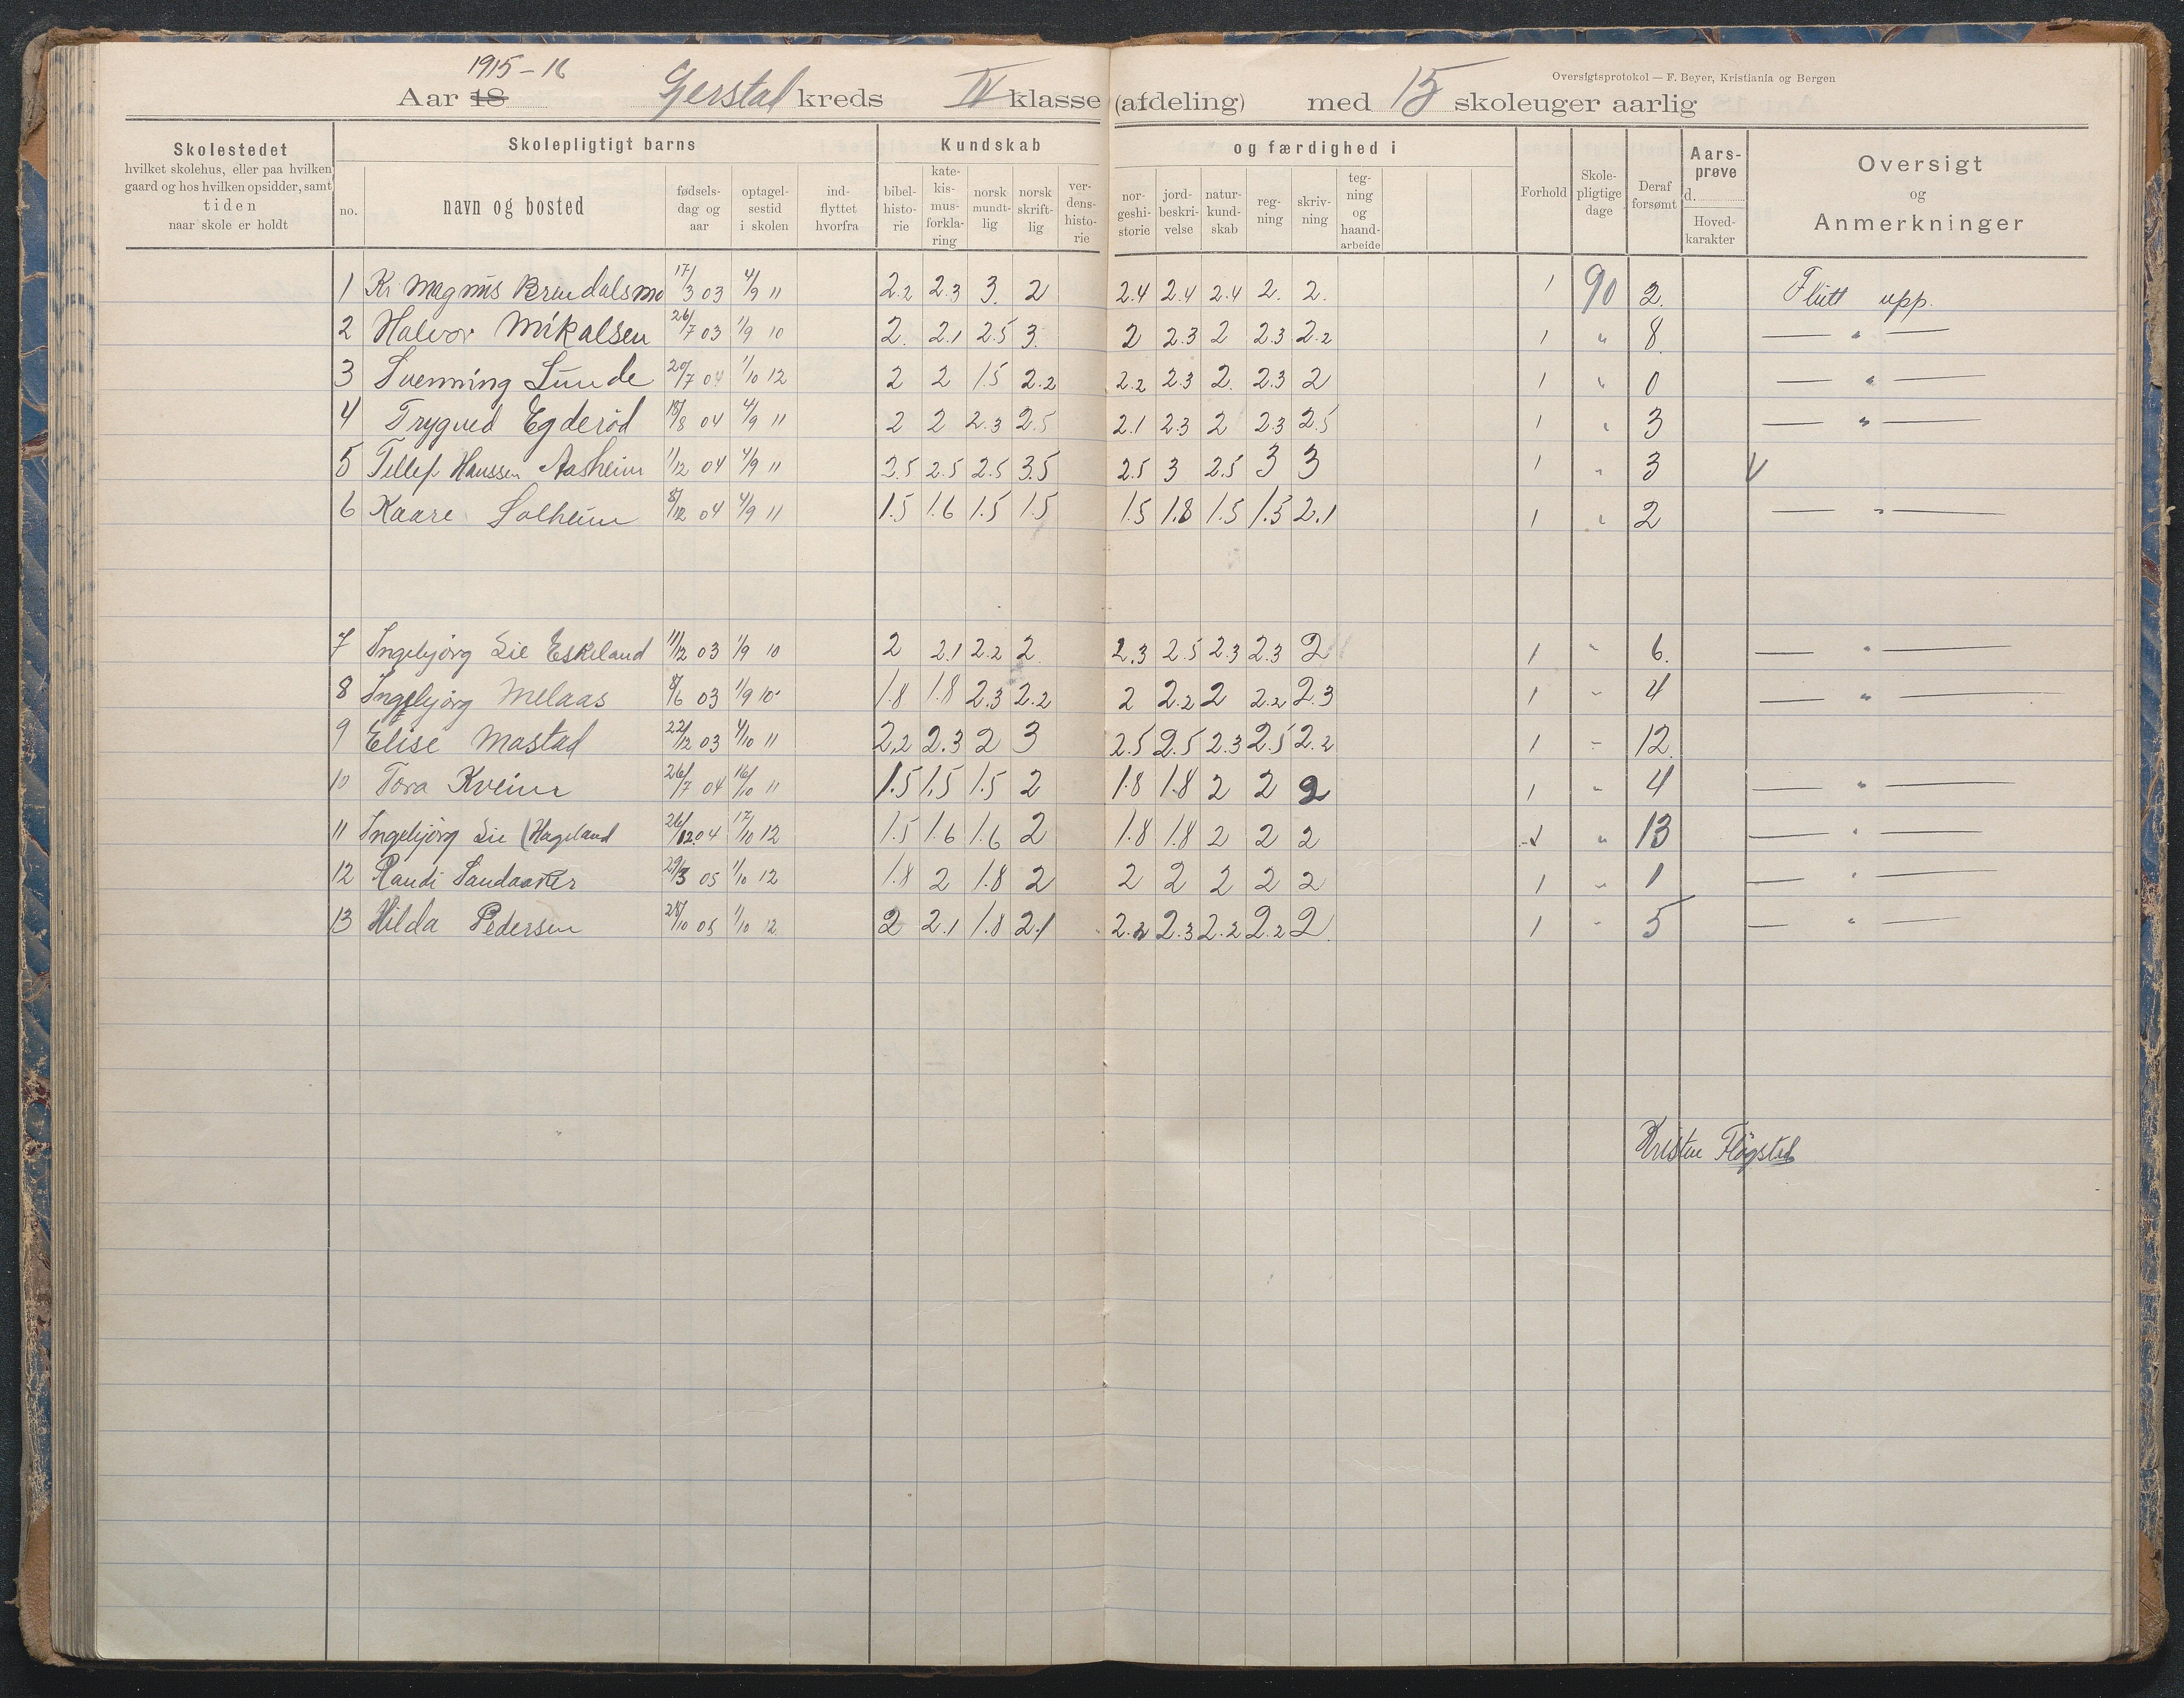 1915-16
Aar 18 Gjerstad kreds IV klasse (afdeling) med 15 skoleuger aarlig
Oversigtsprotokol — F. Beyer, Kristiania og Bergen
Skolestedet
hvilket skolehus, eller paa hvilken
gaard og hos hvilken opsidder, samt
tiden
naar skole er holdt
Skolepligtigt barns
no.
navn og bosted
fødsels-
dag og
aar
optagel-
sestid
i skolen
ind-
flyttet
hvorfra
Kundskab og færdighed i
bibel-
histo-
rie
kate-
kis-
mus-
forkla-
ring
norsk
mundt-
lig
norsk
skrift-
lig
ver-
dens-
histo-
rie
nor-
geshi-
storie
jord-
beskri-
velse
natur-
kund-
skab
reg-
ning
skriv-
ning
teg-
ning
og
haand-
arbeide
Forhold
Skole-
pligtige
dage
Deraf
forsømt
Aars-
prøve
d.
Hoved-
karakter
Oversigt
og
Anmerkninger
1 Kr. Magnus Brendalsmo 17/3 03 4/9 11 2.2 2.3 3. 2 2.4 2.4 2.4 2. 2. 1 90 2. Flutt upp.
2 Halvor Mikalsen 26/7 03 1/9 10 2. 2.1 2.5 3. 2 2.3 2 2.3 2.2 1 " 8. — " —
3 Svenning Lunde 20/7 04 1/10 12 2 2 1.5 2.2 2.2 2.3 2. 2.3 2 1 " 0 — " —
4 Trygved Egderød 18/8 04 4/9 11 2 2 2.3 2.5 2.1 2.3 2 2.3 2.5 1 " 3 — " —
5 Tellef Hanssen Aasheim 1/12 04 4/9 11 2.5 2.5 2.5 3.5 2.5 3 2.5 3 3 1 " 3 V
6 Kaare Solheim 8/12 04 4/9 11 1.5 1.6 1.5 1.5 1.5 1.8 1.5 1.5 2.1 1 " 2 — " —
7 Ingebjørg Lie Eskeland 11/12 03 1/9 10 2 2.1 2.2 2. 2.3 2.5 2.3 2.3 2 1 " 6. — " —
8 Ingebjørg Melaas 8/6 03 1/9 10 1.8 1.8 2.3 2.2 2 2.2 2 2.2 2.3 1 " 4 — " —
9 Elise Mostad 22/12 03 4/10 11 2.2 2.3 2 3 2.5 2.5 2.3 2.5 2.2 1 " 12.
10 Tora Kveim 26/7 04 16/10 11 1.5 1.5 1.5 2 1.8 1.8 2 2 2 1 " 4 — " —
11 Ingebjørg Lie (Hageland 26/12 04 17/10 12 1.5 1.6 1.6 2 1.8 1.8 2 2 2 1 " 13 — " —
12 Randi Sandaaker 29/3 05 1/10 12 1.8 2 1.8 2 2 2 2 2 2 1 " 1 — " —
13 Hilda Pedersen 28/10 05 1/10 12 2 2.1 1.8 2.1 2.2 2.3 2.2 2.2 2. 1 " 5 — " —
Kristen Fløgstad